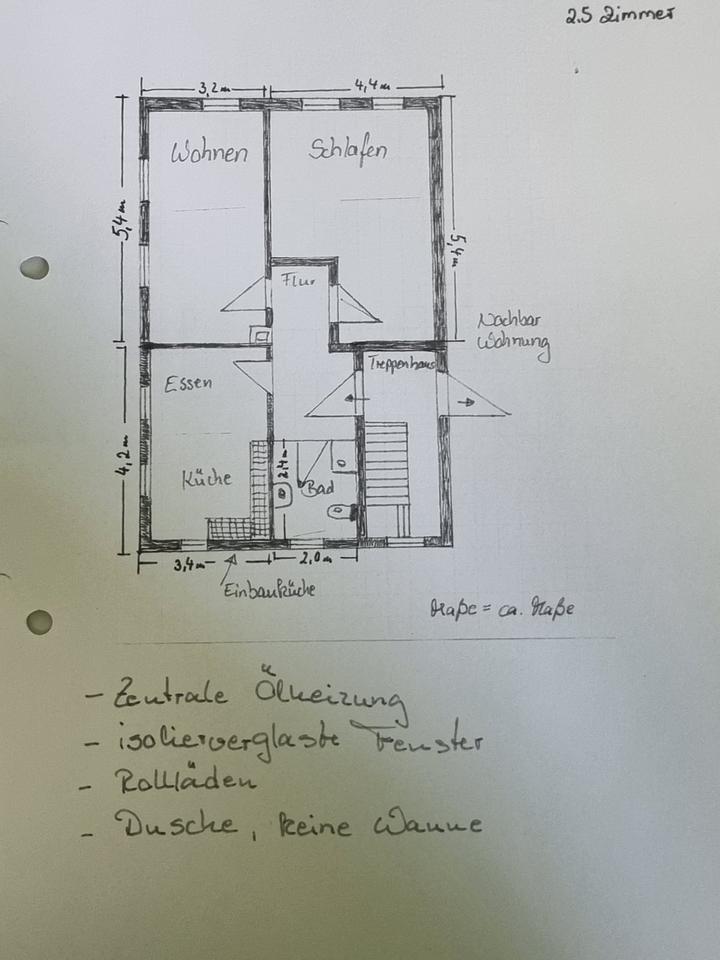 2.5 Zimmer
3,2 m
4,4 m
Wohnen
Schlafen
5,4 m
5,4 m
Flur
Nachbar
Wohnung
Treppenhaus
Essen
4,2 m
Küche
2,4 m
Bad
3,4 m
2,0 m
Einbauküche
Maße = ca. Maße
- Zentrale Ölheizung
- isolierverglaste Fenster
- Rollläden
- Dusche, keine Wanne